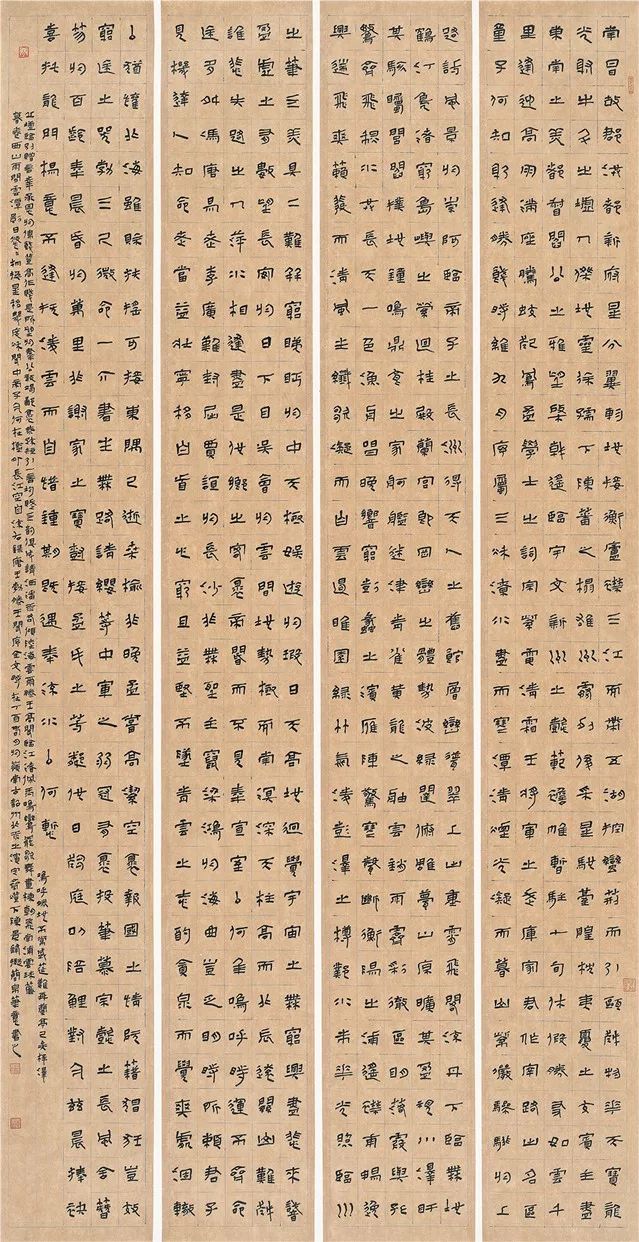 南昌故郡洪都新府星分翼軫地接衡廬襟三江而帶五湖控蠻荊而引甌越物華天寶龍
光射牛斗之墟人傑地靈徐孺下陳蕃之榻雄州霧列俊采星馳臺隍枕夷夏之交賓主盡
東南之美都督閻公之雅望棨戟遙臨宇文新州之懿範襜帷暫駐十旬休假勝友如雲千
里逢迎高朋滿座騰蛟起鳳孟學士之詞宗紫電清霜王將軍之武庫家君作宰路出名區
童子何知躬逢勝餞時維九月序屬三秋潦水盡而寒潭清煙光凝而暮山紫儼驂騑於上
路訪風景於崇阿臨帝子之長洲得天人之舊館層巒聳翠上出重霄飛閣流丹下臨無地
鶴汀鳧渚窮島嶼之縈迴桂殿蘭宮即岡巒之體勢披繡闥俯雕甍山原曠其盈視川澤盱
其駭矚閭閻撲地鐘鳴鼎食之家舸艦迷津青雀黃龍之舳雲銷雨霽彩徹區明落霞與孤
鶩齊飛秋水共長天一色漁舟唱晚響窮彭蠡之濱雁陣驚寒聲斷衡陽之浦遙襟甫暢逸
興遄飛爽籟發而清風生纖歌凝而白雲遏睢園綠竹氣淩彭澤之樽鄴水朱華光照臨川
之筆四美具二難并窮睇眄於中天極娛遊於暇日天高地迥覺宇宙之無窮興盡悲來識
盈虛之有數望長安於日下目吳會於雲間地勢極而南溟深天柱高而北辰遠關山難越
誰悲失路之人萍水相逢盡是他鄉之客懷帝閽而不見奉宣室以何年嗚呼時運不齊命
途多舛馮唐易老李廣難封屈賈誼於長沙非無聖主竄梁鴻於海曲豈乏明時所賴君子
見機達人知命老當益壯寧移白首之心窮且益堅不墜青雲之志酌貪泉而覺爽處涸轍
以猶懽北海雖賒扶搖可接東隅已逝桑榆非晚孟嘗高潔空懷報國之情阮籍猖狂豈效
窮途之哭勃三尺微命一介書生無路請纓等終軍之弱冠有懷投筆慕宗愨之長風舍簪
笏於百齡奉晨昏於萬里非謝家之寶樹接孟氏之芳鄰他日趨庭叨陪鯉對今茲晨捧袂
喜托龍門楊意不逢撫淩雲而自惜鍾期既遇奉流水以何慙
嗚呼勝地不常盛筵難再蘭亭已矣梓澤
丘墟臨別贈言幸承恩於偉餞登高作賦是所望於羣公敢竭鄙懷恭疏短引一言均賦四韻俱成請灑潘江各傾陸海雲爾滕王高閣臨江渚佩玉鳴鸞罷歌舞畫棟朝飛南浦雲珠簾
暮卷西山雨閒雲潭影日悠悠物換星移幾度秋閣中帝子今何在檻外長江空自流右錄唐王勃滕王閣序全文